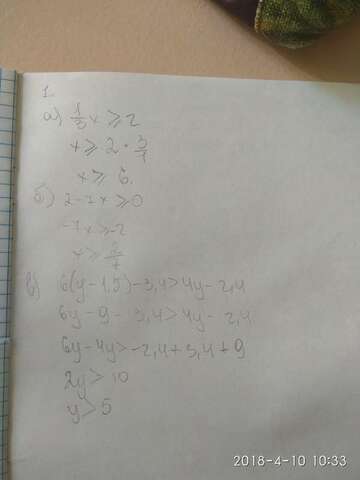 1.
а) 1/3 x ≥ 2
x ≥ 2 · 3/1
x ≥ 6.
б) 2-7x ≥ 0
-7x ≥ -2
x ≥ 2/7
в) 6(y-1,5)-3,4>4y-2,4
6y-9-3,4>4y-2,4
6y-4y>-2,4+3,4+9
2y>10
y>5
2018-4-10 10:33